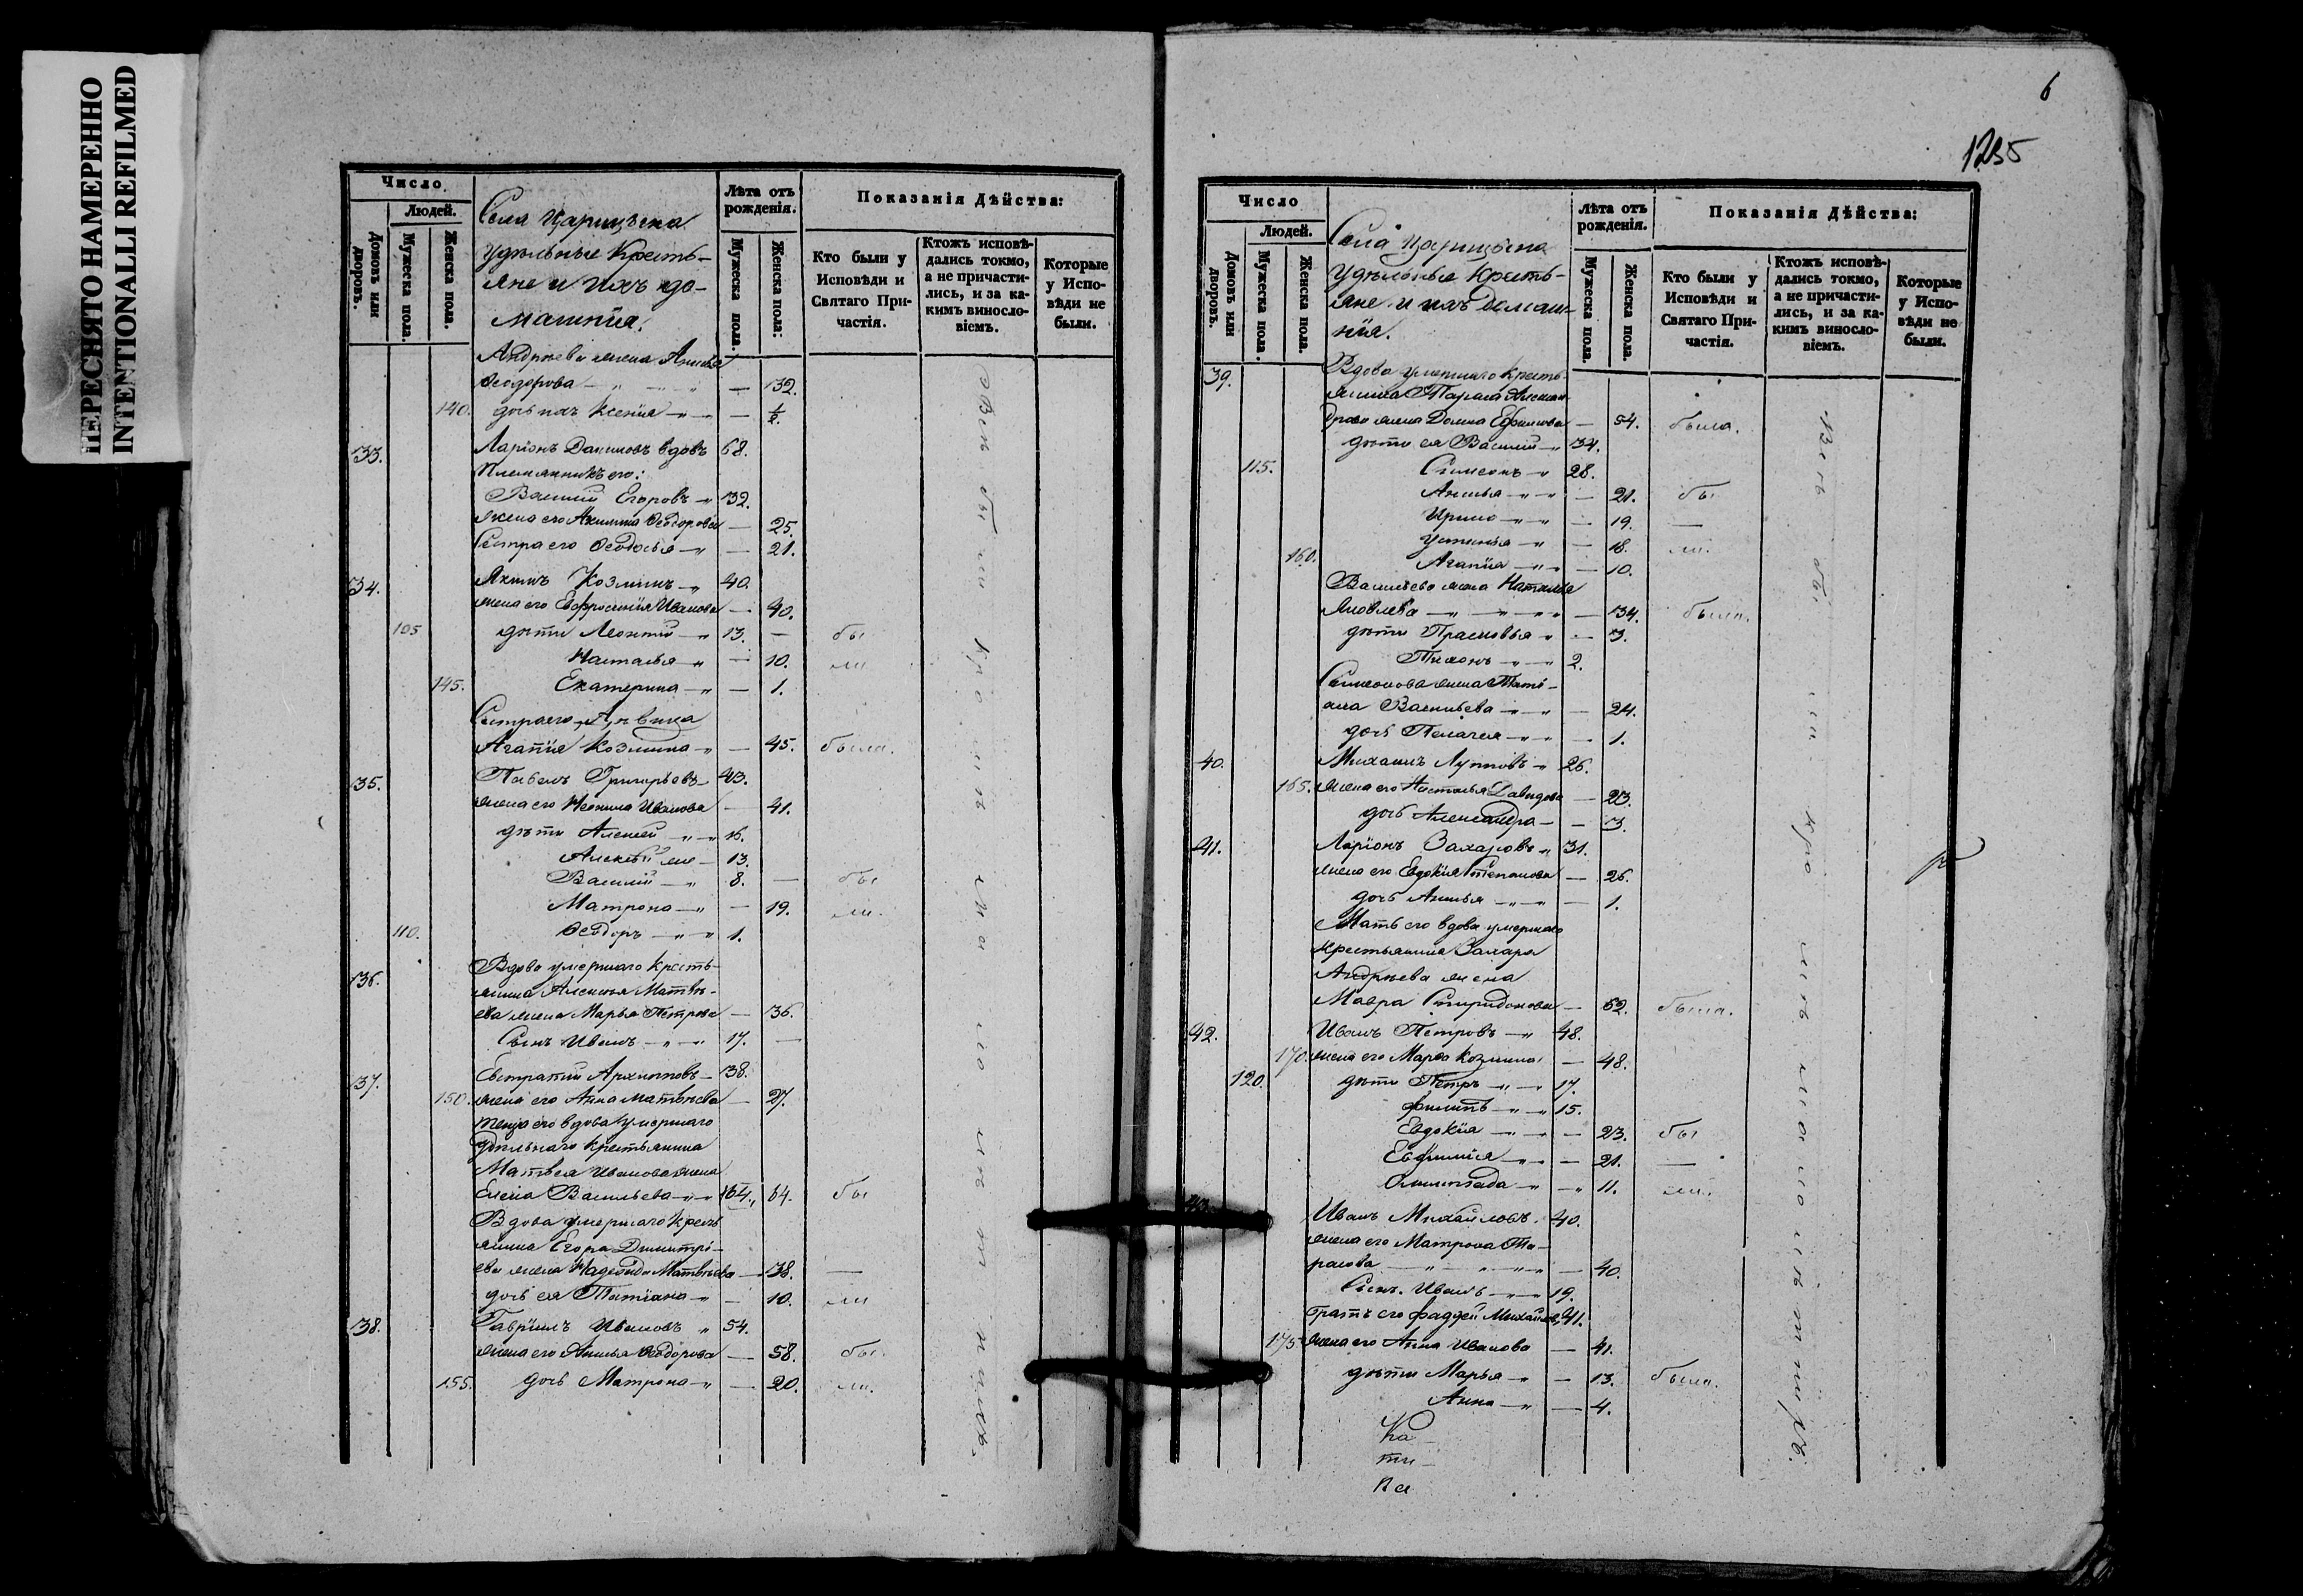 ПЕРЕСНЯТО НАМЕРЕННО
INTENTIONALLI REFILMED
Число
Людей.
Домовъ или дворовъ.
Мужеска пола.
Женска пола.
Села Царицына
Удѣльные Кресть-
яне и ихъ до-
машнія.
Лѣта отъ рожденія.
Мужеска пола.
Женска пола:
Показанія Дѣйства:
Кто были у Исповѣди и Святаго При-частія.
Ктожъ исповѣ-дались токмо, а не причасти-лись, и за ка-кимъ винословіемъ.
Которые у Испо-вѣди не были.
Андреева жена Анисья
Ѳеодорова — 32.
140. дочь ихъ Ксенія — ½.
33. Ларіонъ Даниловъ вдовъ 68.
Племянникъ его:
Василій Егоровъ 32.
жена его Акилина Ѳеодорова — 25.
Сестра его Ѳеодосья — 21.
34. Акимъ Козминъ 40.
жена его Евфросинія Иванова — 40.
105 дѣти Леонтій 13. — бы
Наталья — 10. ли
145. Екатерина — 1.
Сестра его Дѣвица
Агапія Козмина — 45. была.
35. Павелъ Григорьевъ 43.
жена его Неонила Иванова — 41.
дѣти Алексей 16.
Алексѣй 13.
Василій 8. — бы
Матрона — 19. ли.
110. Ѳеодоръ 1.
36. Вдова умершаго кресть-
янина Алексея Матвѣ-
ева жена Марья Петрова — 36.
Сынъ Иванъ 17. —
37. Евстратій Архиповъ 38.
150. жена его Анна Матвѣева — 27.
теща его вдова умершаго
Удѣльнаго крестьянина
Матвея Иванова жена
Елена Васильева 64. бы
Вдова умершаго крест
янина Егора Димитрі-
ева жена Надежда Матвѣева — 38. —
дочь ея Татіана — 10. ли
38. Гавріилъ Ивановъ 54.
жена его Анисья Ѳеодорова — 58. бы
155. дочь Матрона — 20. ли.
Всѣ бы ли кро мѣ ма ло лѣ т нихъ.
6
1235
Число
Людей.
Домовъ или дворовъ.
Мужеска пола.
Женска пола.
Села Царицына
Удѣльные Кресть-
яне и ихъ домаш-
нія.
Лѣта отъ рожденія.
Мужеска пола.
Женска пола.
Показанія Дѣйства:
Кто были у Исповѣди и Святаго При-частія.
Ктожъ исповѣ-дались токмо, а не причасти-лись, и за ка-кимъ винословіемъ.
Которые у Испо-вѣди не были.
39. Вдова умершаго кресть-
янина Тараса Алексан-
дрова жена Домна Ефимова — 54. была.
дѣти ея Василій 34.
115. Симеонъ 28.
Анисья — 21. бы
Ирина — 19. —
Устинья — 18. ли.
160. Агапія — 10.
Васильева жена Наталья
Яковлева — 34. была.
дѣти Прасковья — 3.
Тихонъ 2.
Симеонова жена Таті-
ана Васильева — 24.
дочь Пелагея — 1.
40. Михаилъ Луповъ 26.
165. жена его Настасья Давидова — 23.
дочь Александра — 3.
41. Ларіонъ Захаровъ 31.
жена его Евдокія Степанова — 26.
дочь Анисья — 1.
Мать его вдова умершаго
крестьянина Захара
Андреева жена
Мавра Спиридонова — 62. была.
42. Иванъ Петровъ 48.
170. жена его Марѳа Козмина — 48.
120. дѣти Петръ 17.
Филипъ 15.
Евдокія — 23. бы
Евфимія — 21. —
Олимпіада — 11. ли.
43. Иванъ Михайловъ 40.
жена его Матрона Та-
расова — 40.
Сынъ Иванъ 19.
братъ его Фаддей Михайловъ 41.
175 жена его Анна Иванова — 41.
дѣти Марья — 13. была.
Анна — 4.
Ка
пи
па
Всѣ бы ли кро мѣ ма ло лѣ т нихъ.